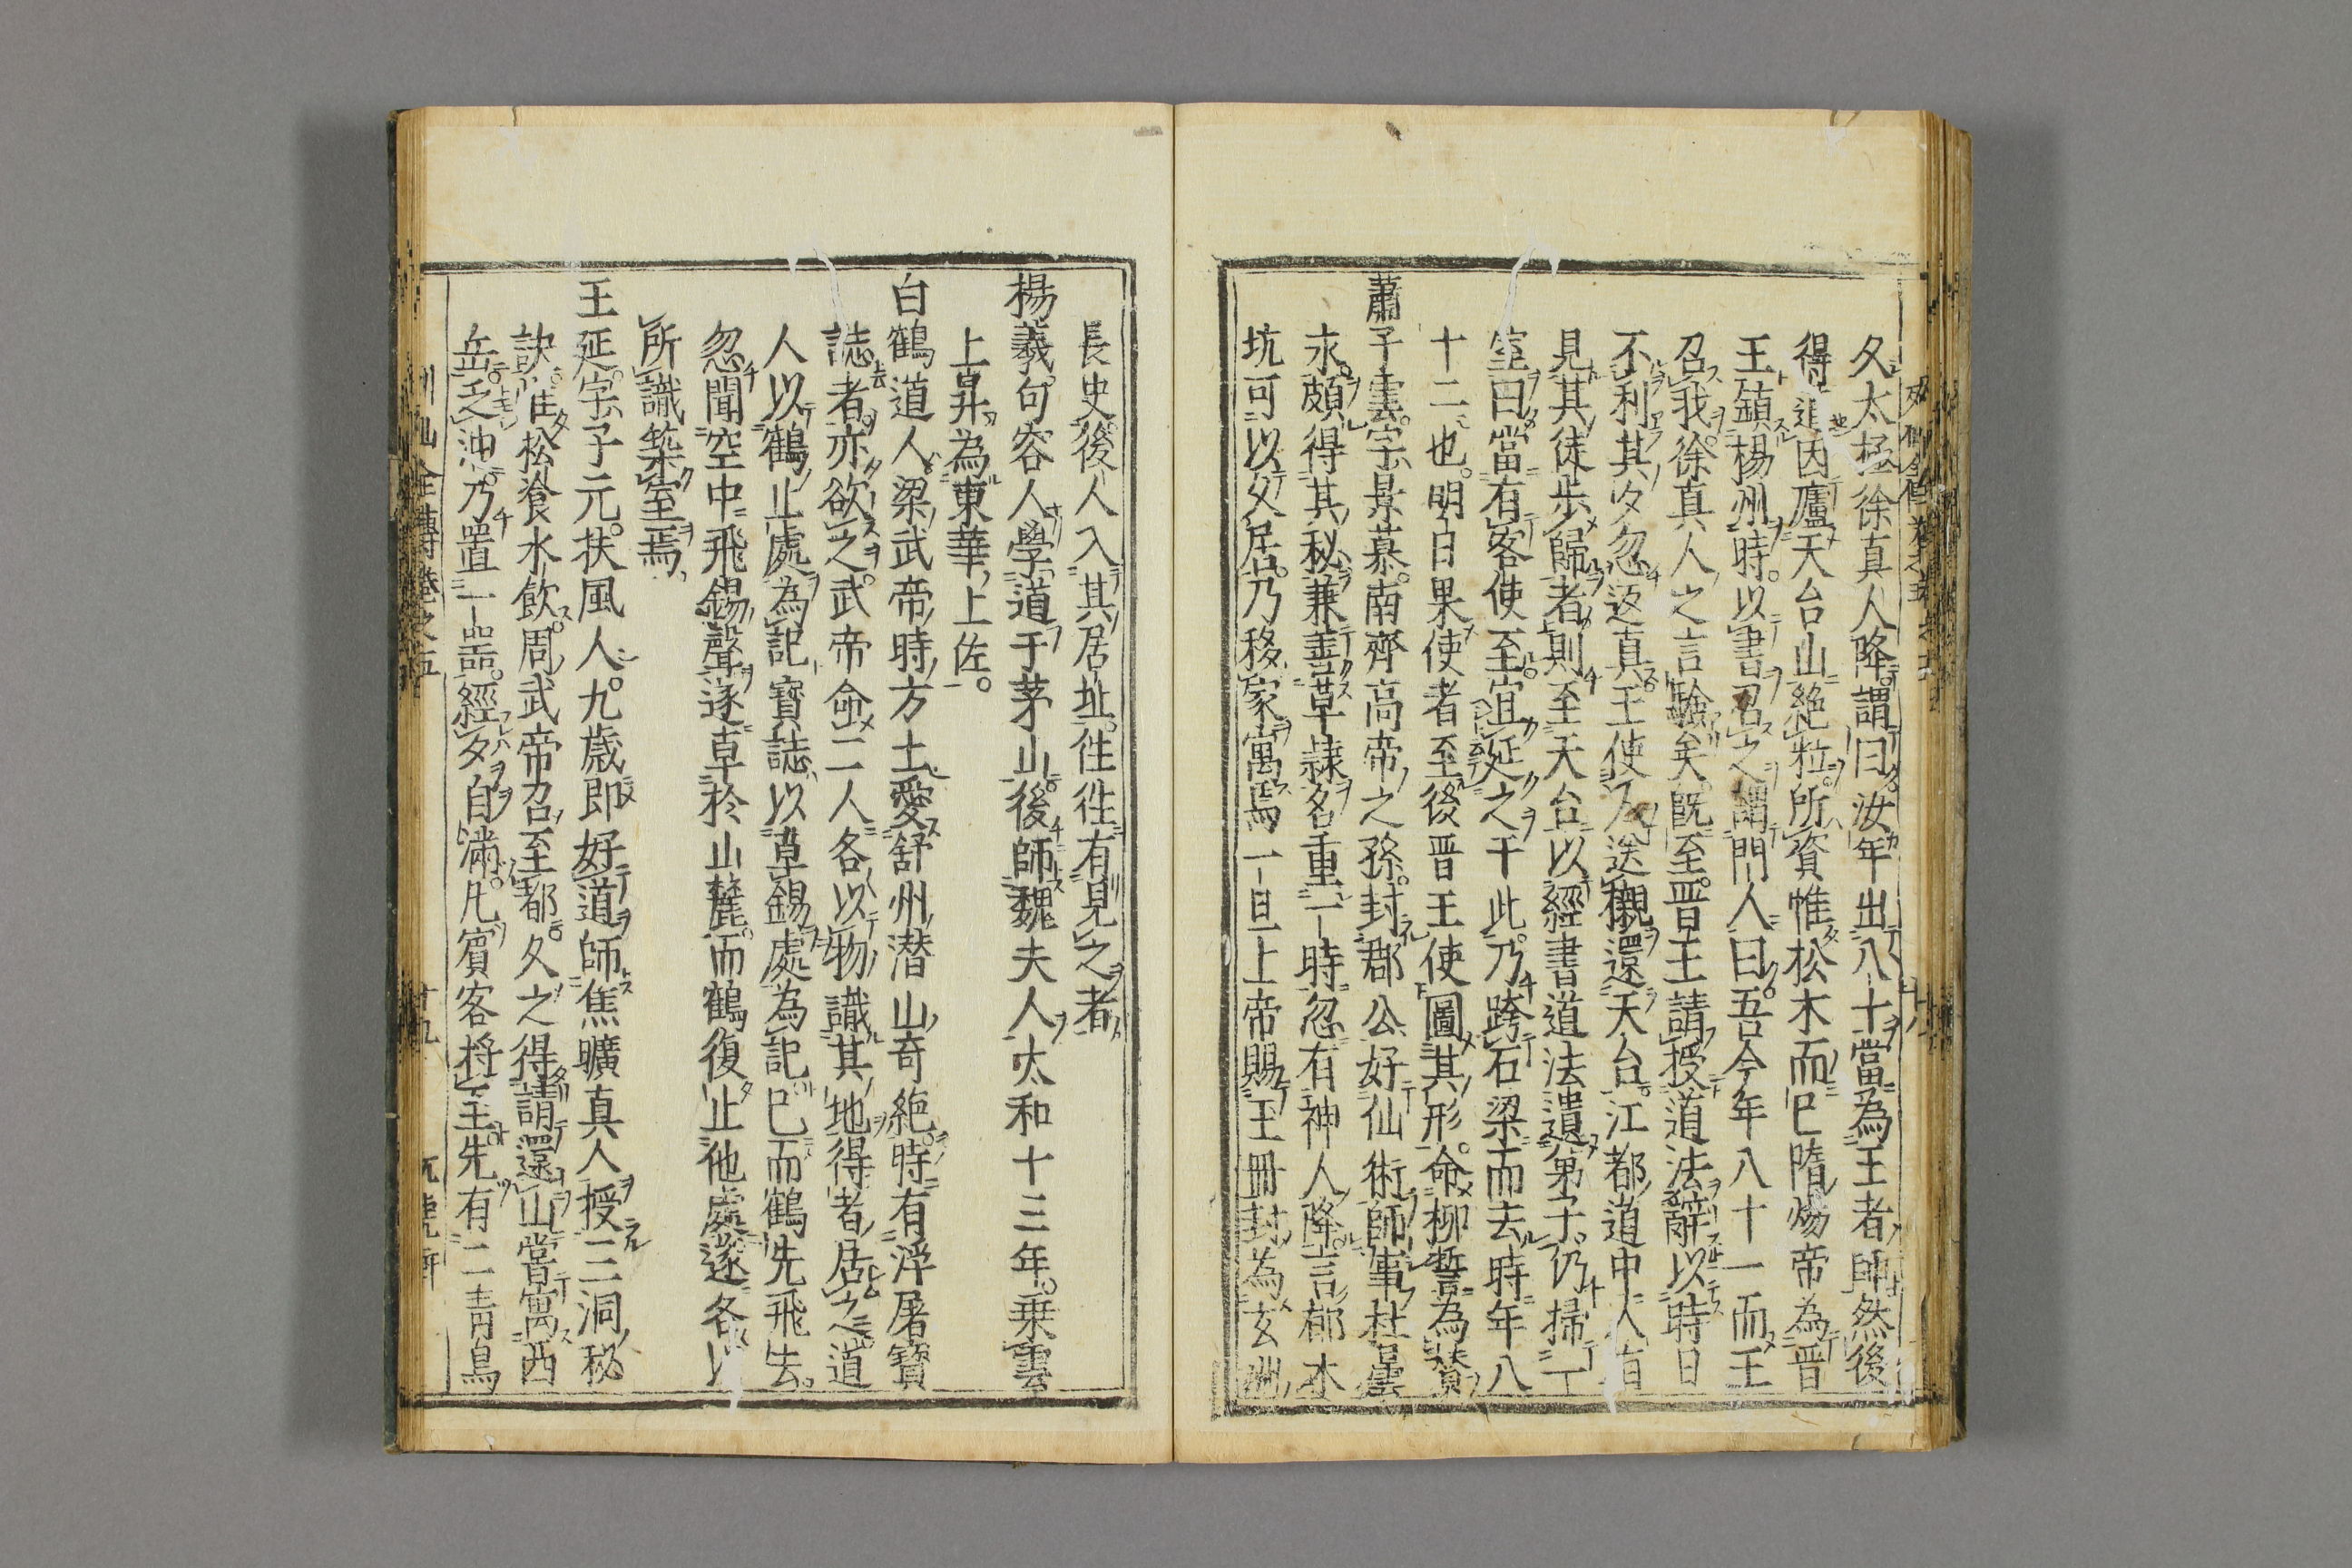 夕太極徐真人降謂曰汝年出八十當為王者師然後
得道因廬天台山絶粒所資惟松木而巳隋煬帝為晋
王鎮楊州時以書召之謂門人曰吾今年八十一而王
召我徐真人之言驗矣既至晋王請授道法辭以時日
不利其夕忽返真王使人送櫬還天台江都道中人有
見其徒歩歸者則至天台以經書道法遺弟子仍掃一
室曰當有客使至宜延之于此乃跨石梁而去時年八
十二也明白果使者至後晋王使圖其形命柳䛒為賛
蕭子雲字景慕南齊高帝之孫封郡公好仙術師事杜曇
永頗得其秘兼善草隷名重一時忽有神人降言郁木
坑可以久居乃移家寓焉一旦上帝賜玉冊封為玄洲
長史後人入其居址徃徃有見之者
楊羲句容人學道于茅山後師魏夫人太和十三年乗雲
上昇為東華上佐
白鶴道人梁武帝時方士愛舒州潜山奇絶時有浮屠寳
誌者亦欲之武帝命二人各以物識其地得者居之道
人以鶴止處為記寳誌以草錫處為記巳而鶴先飛去
忽聞空中飛錫聲遂卓於山麓而鶴復止他處遂各以
所識築室焉
王延字子元扶風人九歳即好道師焦曠真人授三洞秘
訣惟松飡水飲周武帝召至都久之得請還山嘗寓西
岳乏油乃置一噐經夕自滿凡賓客將至先有二青鳥
列仙全傳卷之五
十九